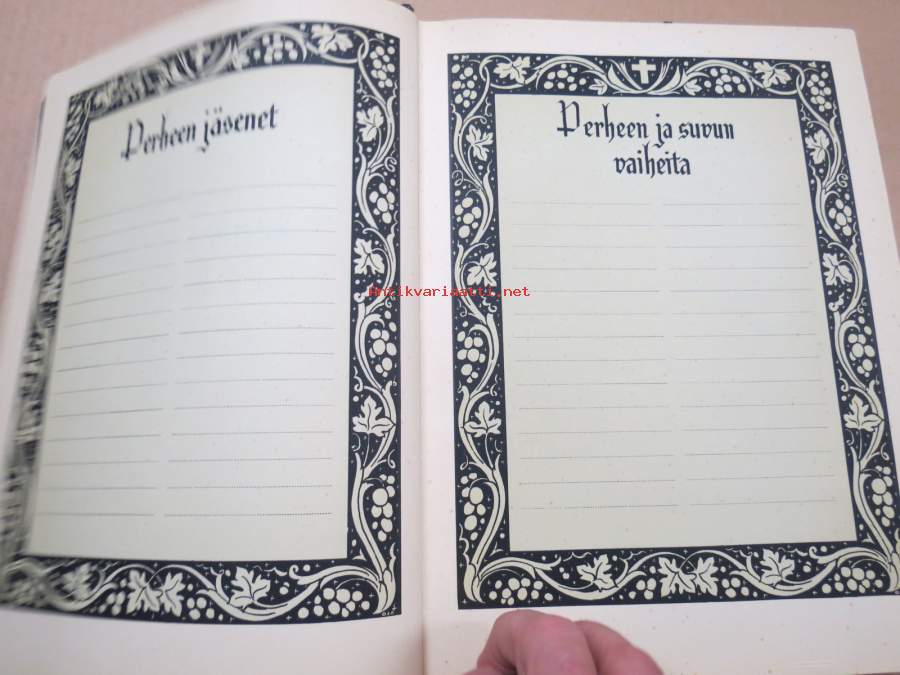 Perheen jäsenet
Perheen ja suvun
vaiheita
Antikvariaatti.net